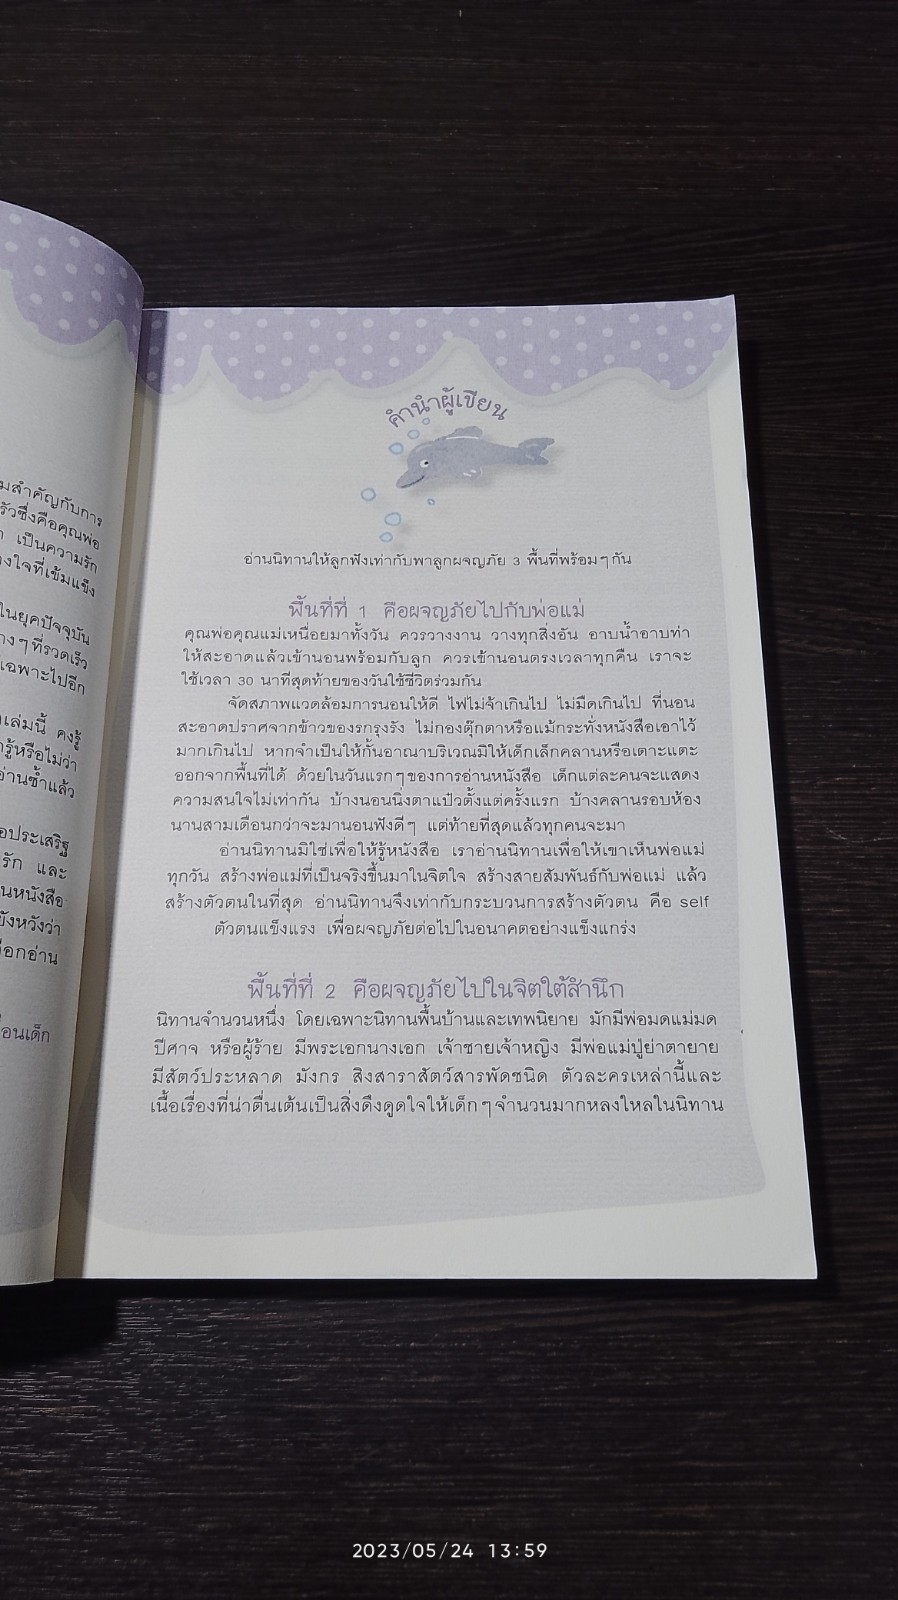 มสำคัญกับการ
รัวซึ่งคือคุณพ่อ
เป็นความรัก
งใจที่เข้มแข็ง
ในยุคปัจจุบัน
างๆที่รวดเร็ว
เฉพาะไปอีก
เล่มนี้ คงรู้
ารู้หรือไม่ว่า
อ่านซ้ำแล้ว
อประเสริฐ
รัก และ
นหนังสือ
ยังหวังว่า
ลือกอ่าน
อนเด็ก
คำนำผู้เขียน
อ่านนิทานให้ลูกฟังเท่ากับพาลูกผจญภัย 3 พื้นที่พร้อมๆกัน
พื้นที่ที่ 1 คือผจญภัยไปกับพ่อแม่
คุณพ่อคุณแม่เหนื่อยมาทั้งวัน ควรวางงาน วางทุกสิ่งอัน อาบน้ำอาบท่า
ให้สะอาดแล้วเข้านอนพร้อมกับลูก ควรเข้านอนตรงเวลาทุกคืน เราจะ
ใช้เวลา 30 นาทีสุดท้ายของวันใช้ชีวิตร่วมกัน
จัดสภาพแวดล้อมการนอนให้ดี ไฟไม่จ้าเกินไป ไม่มืดเกินไป ที่นอน
สะอาดปราศจากข้าวของรกรุงรัง ไม่กองตุ๊กตาหรือแม้กระทั่งหนังสือเอาไว้
มากเกินไป หากจำเป็นให้กั้นอาณาบริเวณมิให้เด็กเล็กคลานหรือเตาะแตะ
ออกจากพื้นที่ได้ ด้วยในวันแรกๆของการอ่านหนังสือ เด็กแต่ละคนจะแสดง
ความสนใจไม่เท่ากัน บ้างนอนนิ่งตาแป๋วตั้งแต่ครั้งแรก บ้างคลานรอบห้อง
นานสามเดือนกว่าจะมานอนฟังดีๆ แต่ท้ายที่สุดแล้วทุกคนจะมา
อ่านนิทานมิใช่เพื่อให้รู้หนังสือ เราอ่านนิทานเพื่อให้เขาเห็นพ่อแม่
ทุกวัน สร้างพ่อแม่ที่เป็นจริงขึ้นมาในจิตใจ สร้างสายสัมพันธ์กับพ่อแม่ แล้ว
สร้างตัวตนในที่สุด อ่านนิทานจึงเท่ากับกระบวนการสร้างตัวตน คือ self
ตัวตนแข็งแรง เพื่อผจญภัยต่อไปในอนาคตอย่างแข็งแกร่ง
พื้นที่ที่ 2 คือผจญภัยไปในจิตใต้สำนึก
นิทานจำนวนหนึ่ง โดยเฉพาะนิทานพื้นบ้านและเทพนิยาย มักมีพ่อมดแม่มด
ปีศาจ หรือผู้ร้าย มีพระเอกนางเอก เจ้าชายเจ้าหญิง มีพ่อแม่ปู่ย่าตายาย
มีสัตว์ประหลาด มังกร สิงสาราสัตว์สารพัดชนิด ตัวละครเหล่านี้และ
เนื้อเรื่องที่น่าตื่นเต้นเป็นสิ่งดึงดูดใจให้เด็กๆจำนวนมากหลงใหลในนิทาน
2023/05/24 13:59